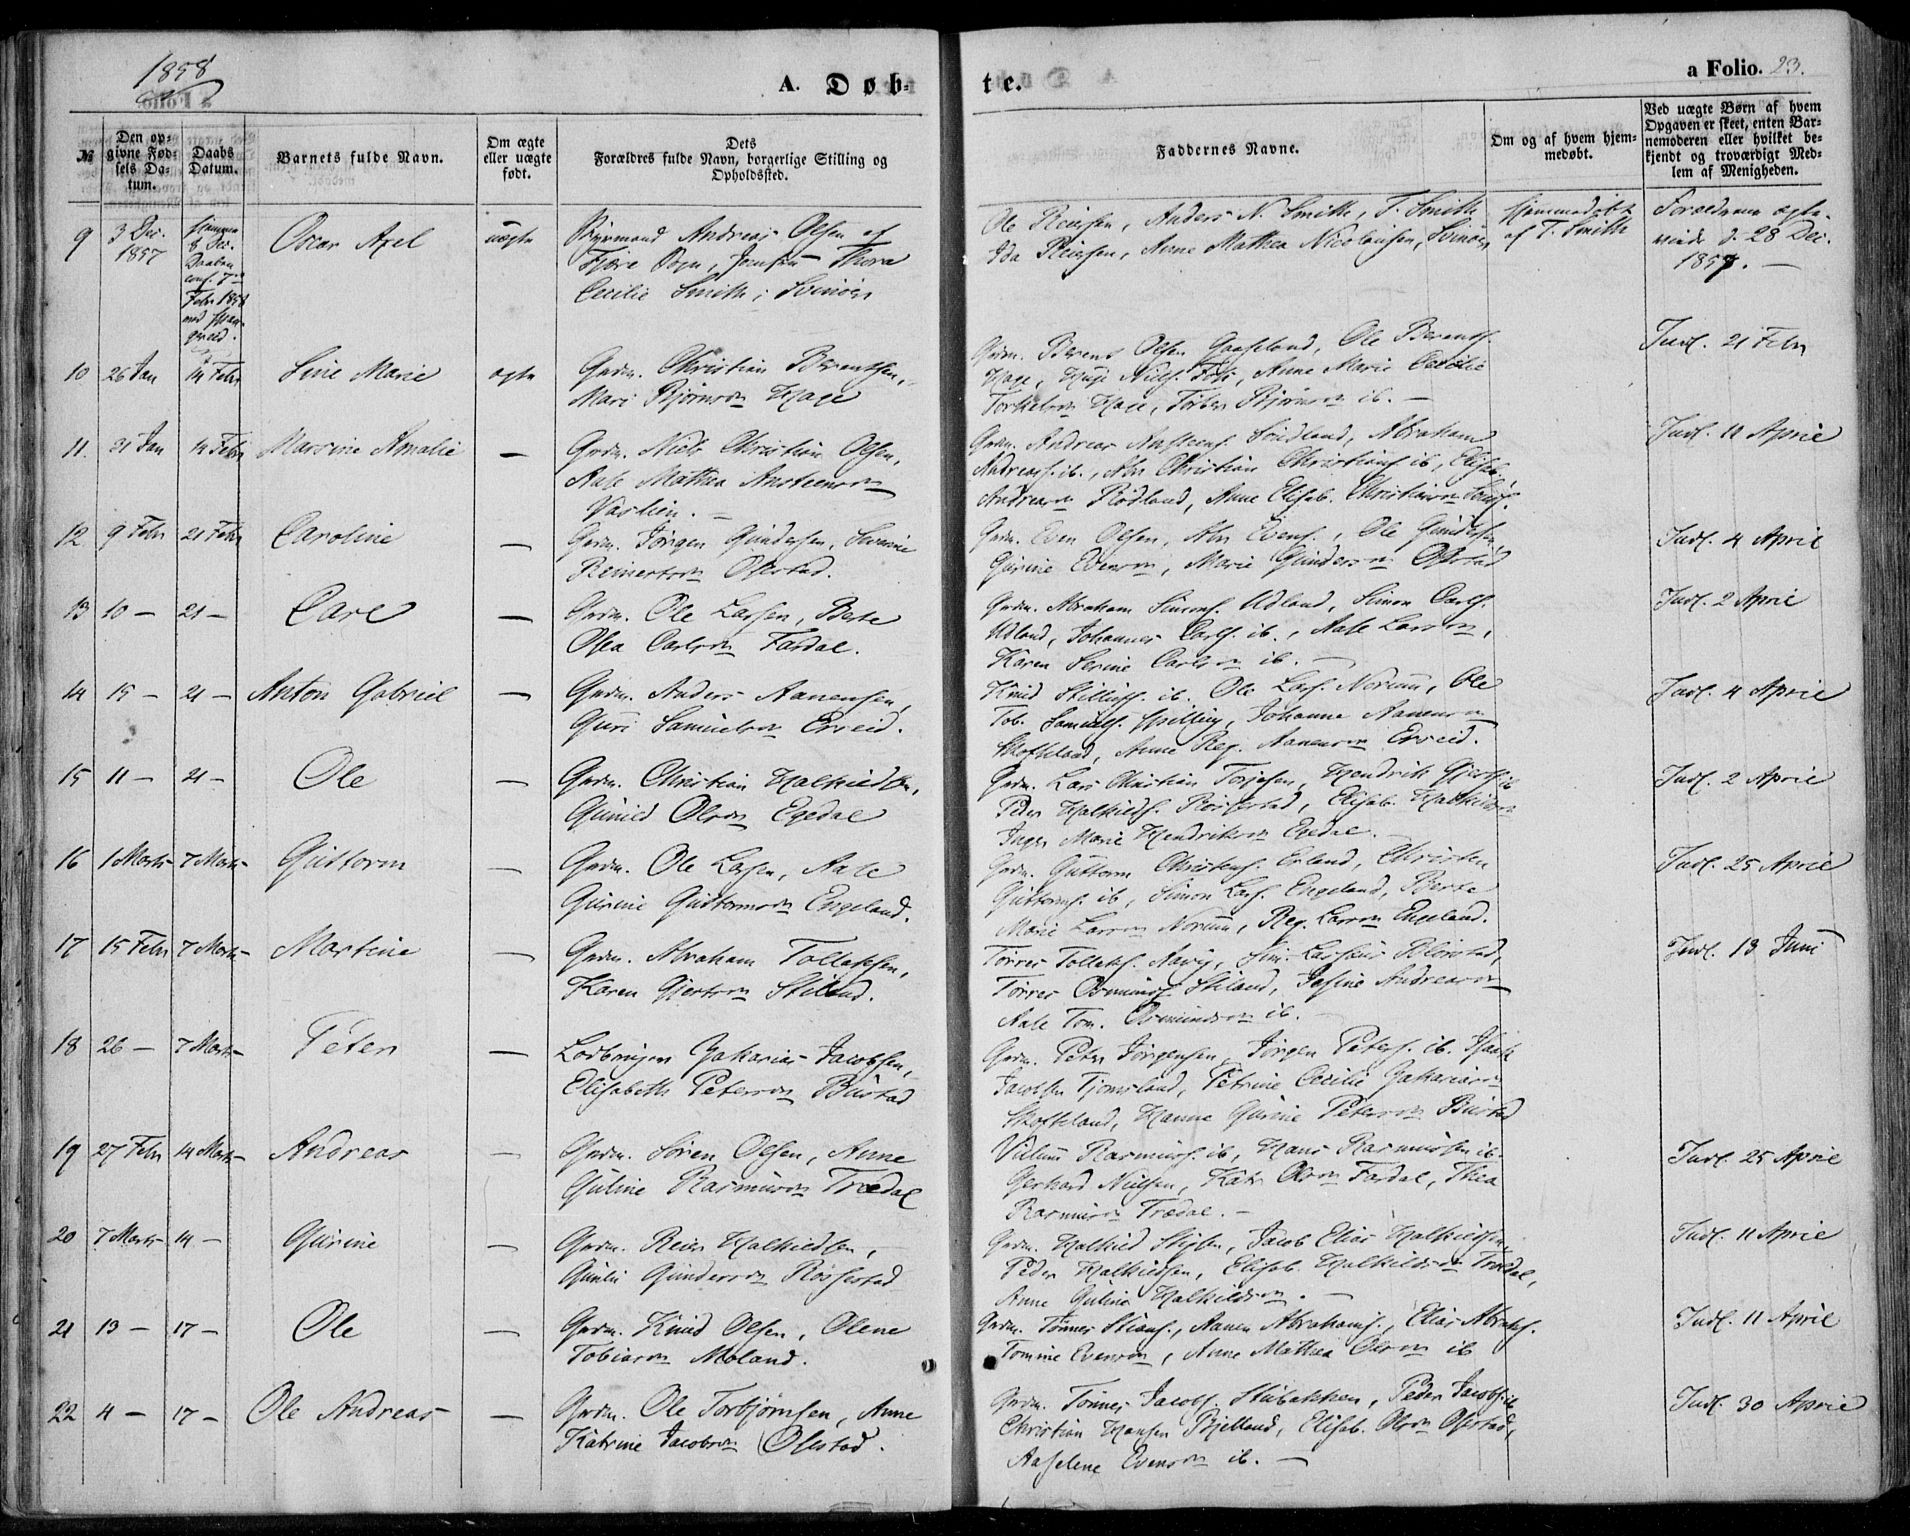 1858
A. Døb-
te.
a Folio. 23.
№
Den op-
givne Fød-
sels Da-
tum.
Daabs
Datum.
Barnets fulde Navn.
Om ægte
eller uægte
født.
Dets
Forældres fulde Navn, borgerlige Stilling og
Opholdssted.
Faddernes Navne.
Om og af hvem hjem-
medøbt.
Ved uægte Børn af hvem
Opgaven er skeet, enten Bar-
nemoderen eller hvilket be-
kjendt og troværdigt Med-
lem af Menigheden.
9 3 Dec. 1857
8 Dec.
Daaben
Febr 1858
Oscar Axel
uægte
Andreas Olsen af
Fjære Sogn, Thora
Cecilie Smith, Svinøer
Ole Reiersen, Anders N. Smith, T. Smith
Ida Reiersen, Anne Mathea Nicolaisen, Svinøer
hjemmedøbt
af T. Smith
Forældrene ægte-
viede d. 28 Dec.
1857. —
10 26 Jan 14 Febr Sine Marie ægte
Grdm. Christian Berentsen,
Mari Bjørnsdn Hage
Grdm. Berent Olsen Gaaseland, Ole Berents.
Hage, Anne Marie Cecilie
Torkelsdn Hage, Bjørnsdn ib. —
Indl. 21 Febr
11. 31 Jan 14 Febr Massine Amalie —
Grdm. Niels Christian Olsen,
Aase Mathea Anstensdn
Vaslien. —
Grdm. Andreas Anstens. Abraham
Andreas. ib., Christian Christians. ib, Elisab.
Andreasdn Rødland, Anne Elisab. Christiansdn
Indl. 11 April
12 9 Febr 21 Febr Caroline —
Grdm. Jørgen Gundersen,
Reinertsdn Ofstad.
Grdm. Even Olsen, Evens., Ole Gundersen,
Gurine Evensdn, Marie Gundersdn Ofstad
Indl. 4 April
13 10 — 21 — Carl —
Grdm. Ole Larsen, Berte
Olea Carlsdn Fardal.
Grdm. Abraham Simons. Udland, Simon Carls.
Udland, Johannes Carls. ib., Aase Larsdn,
Karen Serine Carlsdn ib. —
Indl. 2 April
14 15 — 21 — Anton Gabriel —
Grdm. Anders Aanensen,
Guri Samuelsdn Erveid.
Knud ib. Ole Lars. Nørum, Ole
Tob. Samuels. Johanne Aanensdn
Skofteland, Anne Reg. Aanensdn Erveid.
Indl. 4 April
15 11 — 21 — Ole —
Grdm. Christian Halkieldsen,
Gunild Olsdn Egedal
Grdm. Lars Christian Terjesen, Hendrik
Peder Halkields. Røisestad, Elisab. Halkieldsdn
Inger Marie Hendriksdn Egedal. —
Indl. 2 April
16 1 Marts 7 Marts Guttorm —
Grdm. Ole Larsen, Aase
Gurine Guttormsdn Engeland.
Grdm. Guttorm Christens. Erland, Christen
Guttorms. ib, Simon Lars. Engeland, Berte
Marie Larsdn Nørum, Reg. Larsdn Engeland.
Indl. 25 April
17 15 Febr 7 Marts Martine —
Grdm. Abraham Tollaksen,
Karen Gjertsdn Stiland.
Tørres Tollaks. Aavig,
Tørres Stiland, Josine Andreasdn
Aase Tom. ib. —
Indl. 13 Juni
18 26 — 7 Marts Peter —
Zakarias Jacobsen,
Elisabeth Petersdn Bustad
Grdm. Peter Jørgensen, Jørgen Peters. ib. Isaak
Jacobsen Tjomsland, Petrine Cecilie Zakariasdn
Skofteland, Hanne Gurine Petersdn Bustad
19 27 Febr 14 Marts Andreas —
Grdm. Søren Olsen, Anne
Guline Rasmusdn Trædal
Villum Rasmus. ib, Hans Rasmussen ib.
Gerhard Nielsen, Olsdn Fardal, Thea
Rasmusdn Trædal. —
Indl. 25 April
20 7 Marts 14 — Gurine —
Grdm. Reier Halkieldsen,
Gundersdn Røisestad
Grdm. Halkield Jacob Elias Halkieldsen,
Peder Halkieldsen, Elisab. Halkieldsdn Trædal,
Anne Guline Halkieldsdn. —
Indl. 11 April
21 13 — 17 — Ole —
Grdm. Knud Olsen, Olene
Tobiasdn Moland.
Grdm. Tønnes Aanen Abrahams., Elias Abrahs.
Tomine Evensdn, Anne Mathea Olsdn ib
Indl. 11 April
22 4 — 17 — Ole Andreas —
Grdm. Ole Torbjørnsen, Anne
Katrine Jacobsdn Ofstad.
Grdm. Tønnes Jacobs. Stubakken, Peder Jacobs. ib
Christian Hansen Bjelland, Elisab. Olsdn Ofstad,
Aaselene Evensdn ib. —
Indl. 30 April